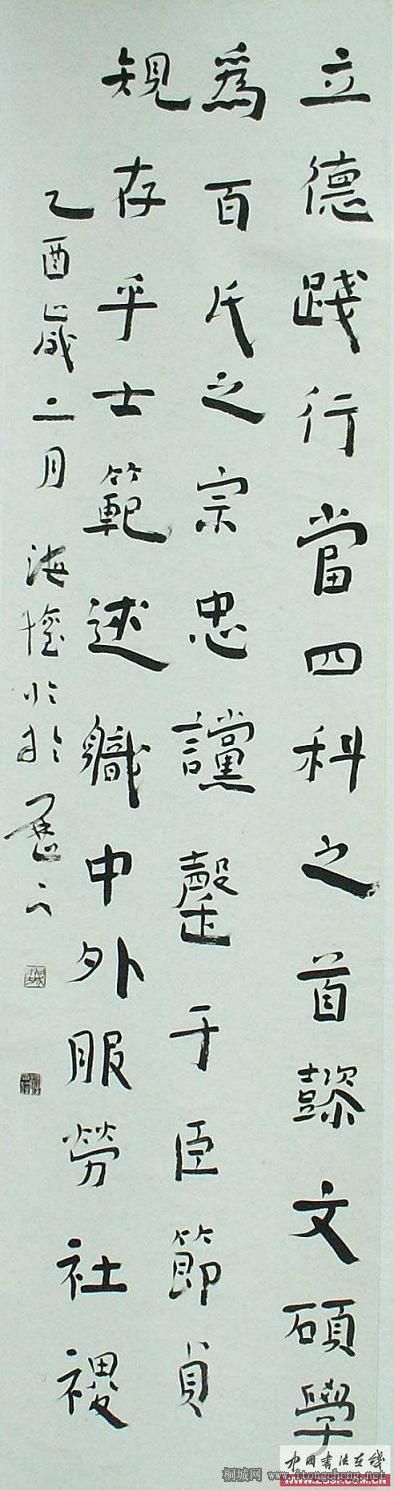 立德踐行當四科之首懿文碩學
爲百氏之宗忠讜罄于臣節貞
規存乎士範述軄中外服勞社稷
乙酉歲二月海
中国书法在线
桐城网